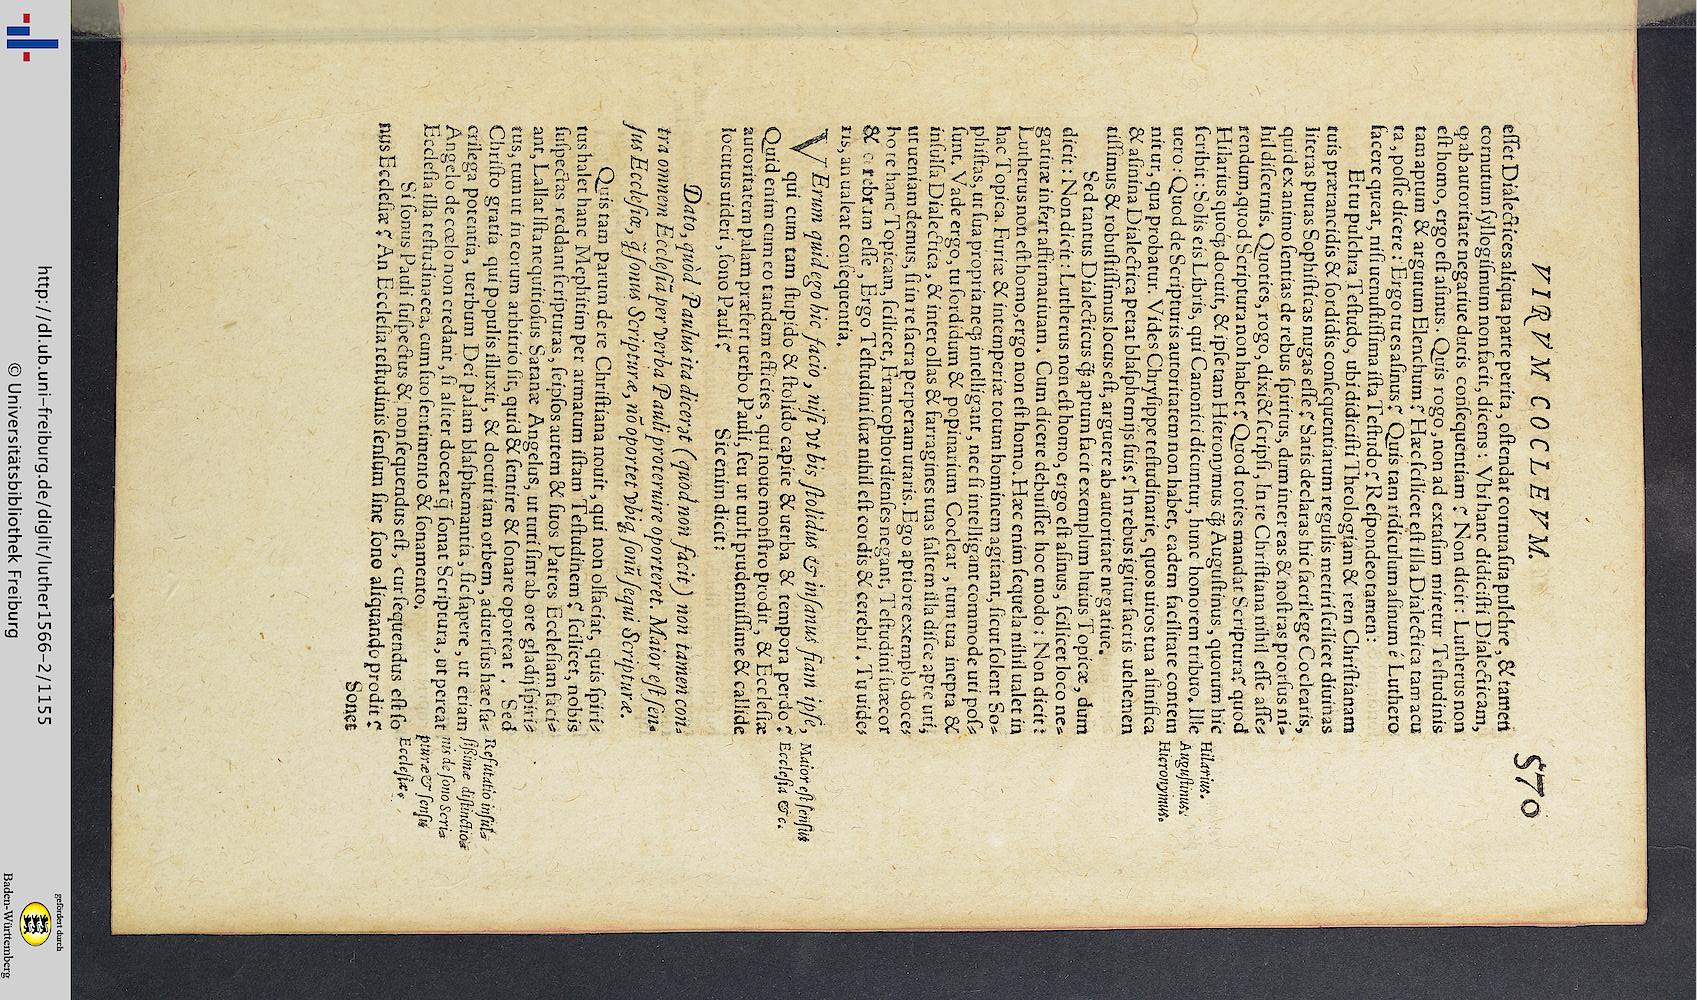 VIRVM COCLEVM.
570
eſſet Dialectices aliqua parte perita, oſtendat cornua ſua pulchre, & tameti
cornutum ſyllogiſmum non facit, dicens: Vbi hanc didiciſti Dialecticam,
ꝙ ab autoritate negatiue ducis conſequentiam? Non dicit: Lutherus non
eſt homo, ergo eſt aſinus. Quis rogo, non ad extaſim miretur Teſtudinis
tam aptum & argutum Elenchum? Hæc ſcilicet eſt illa Dialectica tam acu
ta, poſſe dicere: Ergo tu es aſinus? Quis tam ridiculum aſinum é Luthero
facere queat, niſi uenuſtiſſima iſta Teſtudo? Reſpondeo tamen:
Et tu pulchra Teſtudo, ubi didiciſti Theologiam & rem Chriſtianam
tuis prærancidis & ſordidis conſequentiarum regulis metiri ſcilicet diuinas
literas puras Sophiſticas nugas eſſe? Satis declaras hic ſacrilege Coclearis,
quid ex animo ſentias de rebus ſpiritus, dum inter eas & noſtras prorſus ni-
hil diſcernis. Quoties, rogo, dixi & ſcripſi, In re Chriſtiana nihil eſſe aſſe-
rendum, quod Scriptura non habet? Quod toties mandat Scriptura? quod
Hilarius quoꝗ docuit, & ipſe tam Hieronymus ꝗ̃ Auguſtinus, quorum hic
ſcribit: Solis eis Libris, qui Canonici dicuntur, hunc honorem tribuo. Ille
uero: Quod de Scripturis autoritatem non habet, eadem facilitate contem
nitur, qua probatur. Vides Chryſippe teſtudinarie, quos uiros tua aſinifica
& aſinina Dialectica petat blaſphemijs ſuis? In rebus igitur ſacris uehemen
tiſſimus & robuſtiſſimus locus eſt, arguere ab autoritate negatiue.
Hilarius.
Auguſtinus.
Hieronymus.
Sed tantus Dialecticus ꝗ̃ aptum facit exemplum huius Topicæ, dum
dicit: Non dicit: Lutherus non eſt homo, ergo eſt aſinus, ſcilicet loco ne-
gatiuæ infert affirmatiuam. Cum dicere debuiſſet hoc modo: Non dicit:
Lutherus non eſt homo, ergo non eſt homo. Hæc enim ſequela nihil ualet in
hac Topica. Furiæ & intemperiæ totum hominem agitant, ſicut ſolent So-
phiſtas, ut ſua propria neꝗ intelligant, nec ſi intelligant commode uti poſ-
ſunt. Vade ergo, tu ſordidum & popinarium Coclear, cum tua inepta &
inſulſa Dialectica, & inter ollas & farragines tuas ſaltem illa diſce apte uti,
ut ueniam demus, ſi in re ſacra perperam utaris. Ego aptiore exemplo doce-
bo te hanc Topicam, ſcilicet, Francophordienſes negant, Teſtudini ſuæ cor
& cerebrum eſſe, Ergo Teſtudini ſuæ nihil eſt cordis & cerebri. Tu uide-
ris, an ualeat conſequentia.
VErum quid ego hic facio, niſi vt bis ſtolidus & inſanus fiam ipſe,
qui cum tam ſtupido & ſtolido capite & uerba & tempora perdo?
Quid enim cum eo tandem efficies, qui nouo monſtro prodit, & Eccleſiæ
autoritatem palam præfert uerbo Pauli, ſeu ut uult prudentiſſime & callide
locutus uideri, ſono Pauli? Sic enim dicit:
Maior eſt ſenſus
Eccleſia &c.
Dato, quòd Paulus ita dicerat (quod non facit) non tamen con-
tra omnem Eccleſia per verba Pauli proteruire oporteret. Maior eſt ſen-
ſus Eccleſiæ, ꝗ̃ ſonus Scripturæ, nõ oportet vbiꝗ ſonũ ſequi Scripturæ.
Quis tam parum de re Chriſtiana nouit, qui non olfaciat, quis ſpiri-
tus halet hanc Mephitim per armatum iſtam Teſtudinem? ſcilicet, nobis
ſuſpectas reddant ſcripturas, ſeipſos autem & ſuos Patres Eccleſiam faci-
ant, Lallat iſta nequitioſus Satanæ Angelus, ut tuti ſint ab ore gladij ſpiri-
tus, tum ut in eorum arbitrio ſit, quid & ſentire & ſonare oporteat. Sed
Chriſto gratia qui populis illuxit, & docuit iam orbem, aduerſus hæc ſa-
crilega potentia, uerbum Dei palam blaſphemantia, ſic ſapere, ut etiam
Angelo de cœlo non credant, ſi aliter doceat ꝗ̃ ſonat Scriptura, ut pereat
Eccleſia illa teſtudinacea, cum ſuo ſentimento & ſonamento.
Refutatio inſul-
ſißimæ diſtinctio-
nis de ſono Scri-
pturæ & ſenſu
Eccleſiæ.
Si ſonus Pauli ſuſpectus & non ſequendus eſt, cur ſequendus eſt ſo
nus Eccleſiæ? An Eccleſia teſtudinis ſenſum ſine ſono aliquando prodit?
Sonet
http://dl.ub.uni-freiburg.de/diglit/luther1566-2/1155
© Universitätsbibliothek Freiburg
gefördert durch
Baden-Württemberg